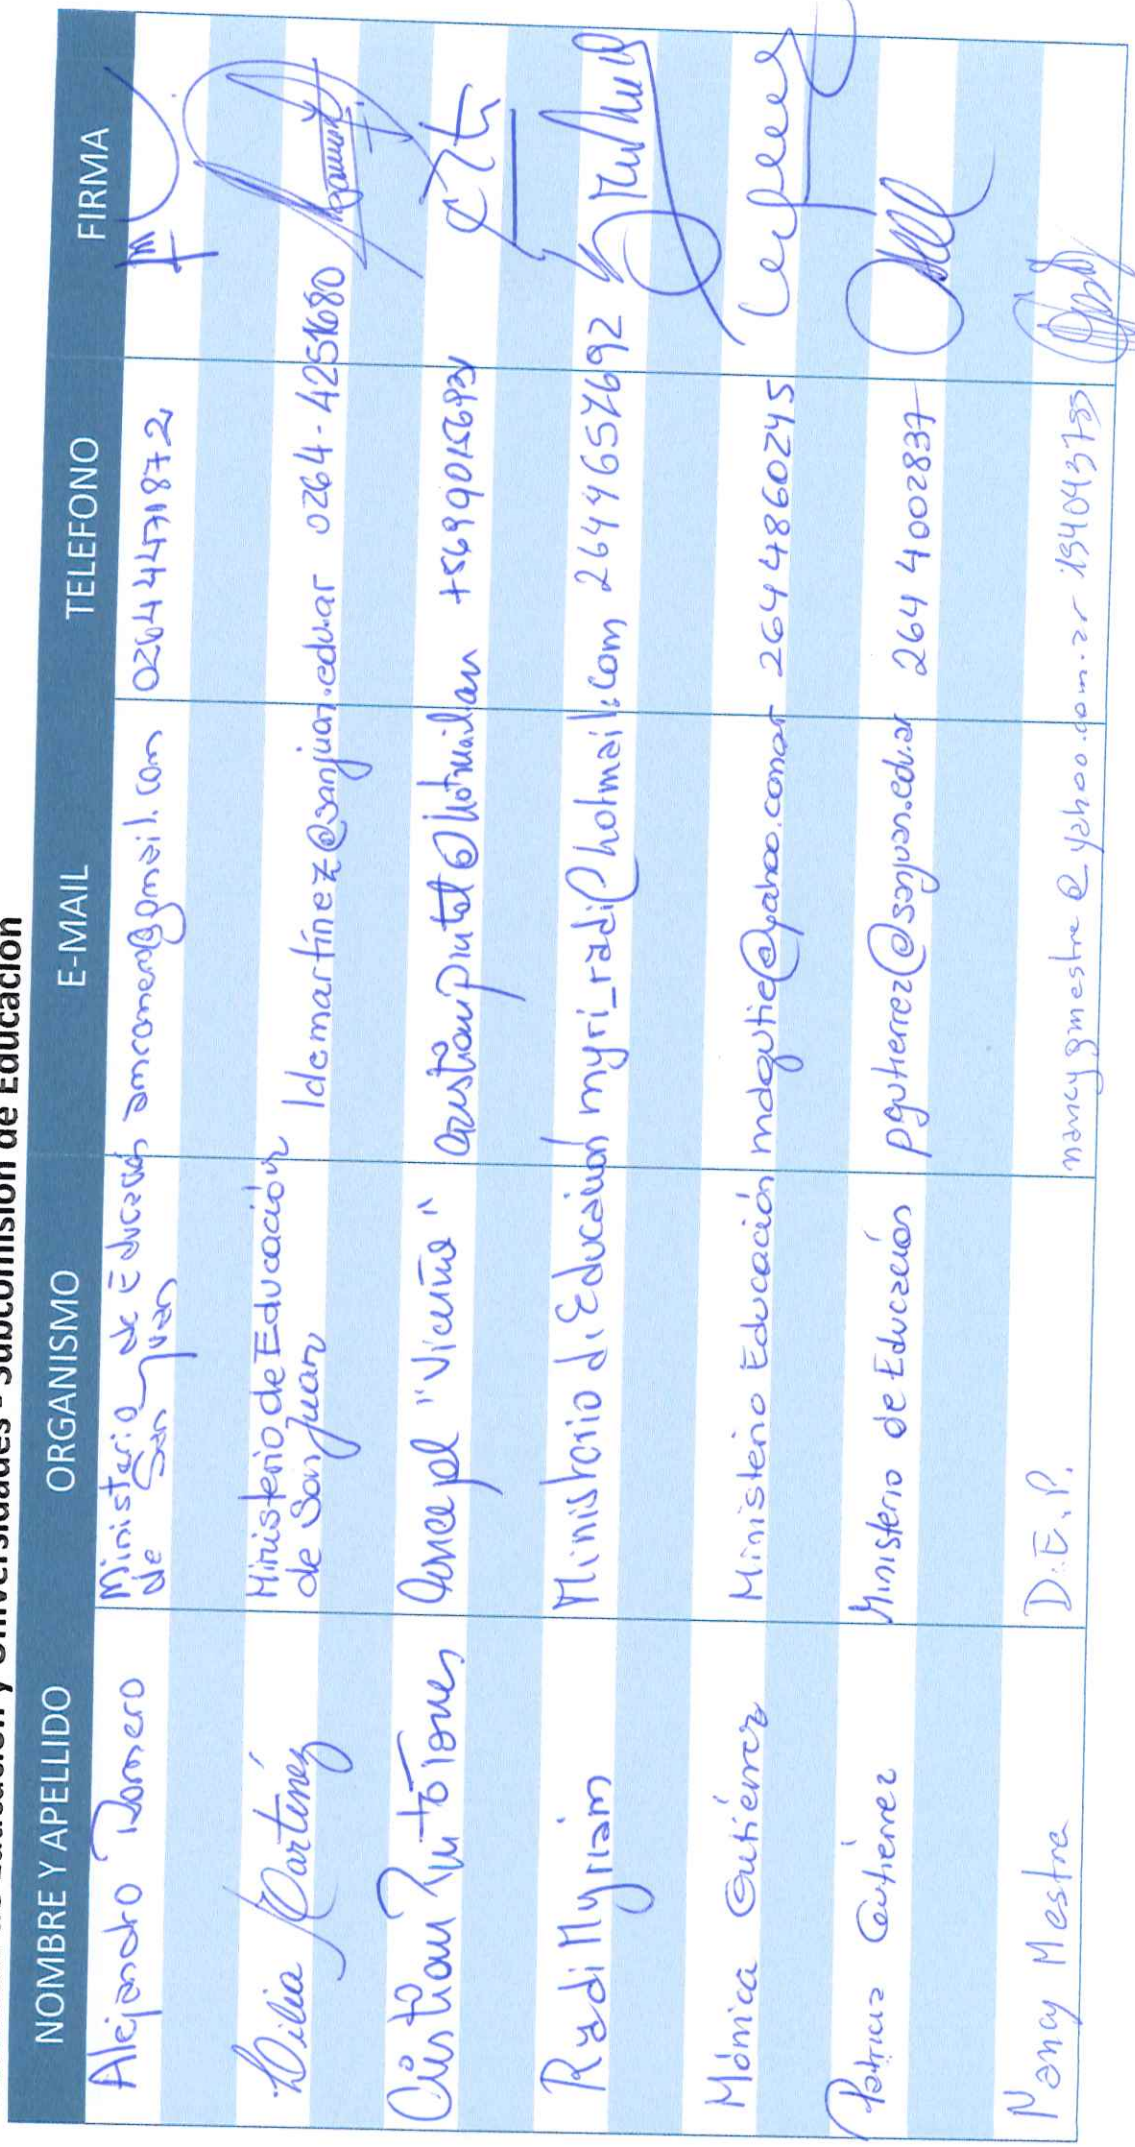 Educación y Universidades - Subcomisión de Educación
NOMBRE Y APELLIDO ORGANISMO E-MAIL TELEFONO FIRMA
Alejandro Romero Ministerio de Educación de San Juan amromero@gmail.com 0264 4471872
Lilia Martínez Ministerio de Educación de San Juan ldcmartinez@sanjuan.edu.ar 0264-4251680
Cristian Pinto Torres "Vicuña"
Radi Myriam Ministerio de Educación myri_radi@hotmail.com 2644657692
Mónica Gutiérrez Ministerio Educación mdegutie@yahoo.com.ar 264 4860245
Patricia Gutiérrez Ministerio de Educación pgutierrez@sanjuan.edu.ar 264 4002837
Nancy Mestre D.E.P. nancygmestre@yahoo.com.ar